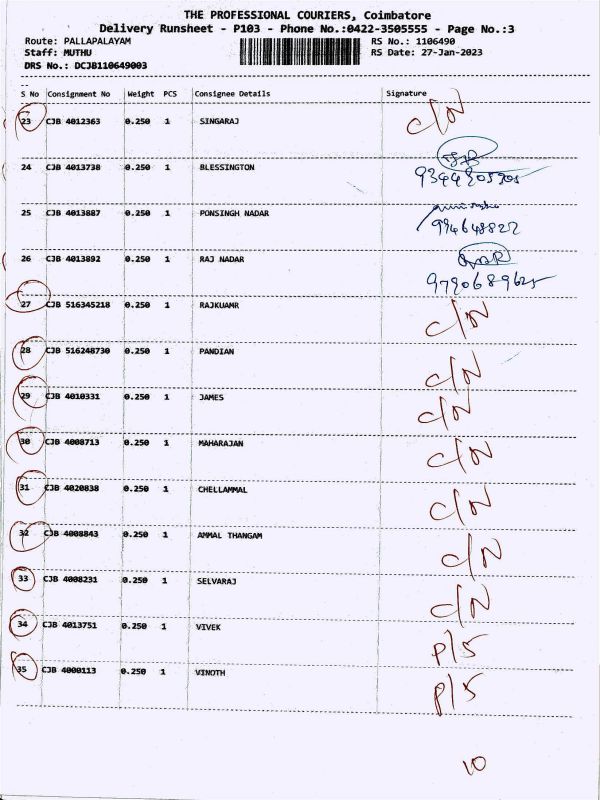 THE PROFESSIONAL COURIERS, Coimbatore
Delivery Runsheet - P103 - Phone No.:0422-3505555 - Page No.:3
Route: PALLAPALAYAM RS No.: 1106490
Staff: MUTHU RS Date: 27-Jan-2023
DRS No.: DCJB110649003
S No Consignment No Weight PCS Consignee Details Signature
23 CJB 4012363 0.250 1 SINGARAJ C/N
24 CJB 4013738 0.250 1 BLESSINGTON
25 CJB 4013887 0.250 1 PONSINGH NADAR
994648822
26 CJB 4013892 0.250 1 RAJ NADAR
27 CJB 516345218 0.250 1 RAJKUAMR C/N
28 CJB 516248730 0.250 1 PANDIAN C/N
29 CJB 4010331 0.250 1 JAMES C/N
30 CJB 4008713 0.250 1 MAHARAJAN C/N
31 CJB 4020838 0.250 1 CHELLAMMAL C/N
32 CJB 4008843 0.250 1 AMMAL THANGAM C/N
33 CJB 4008231 0.250 1 SELVARAJ C/N
34 CJB 4013751 0.250 1 VIVEK P/S
35 CJB 4000113 0.250 1 VINOTH P/S
10